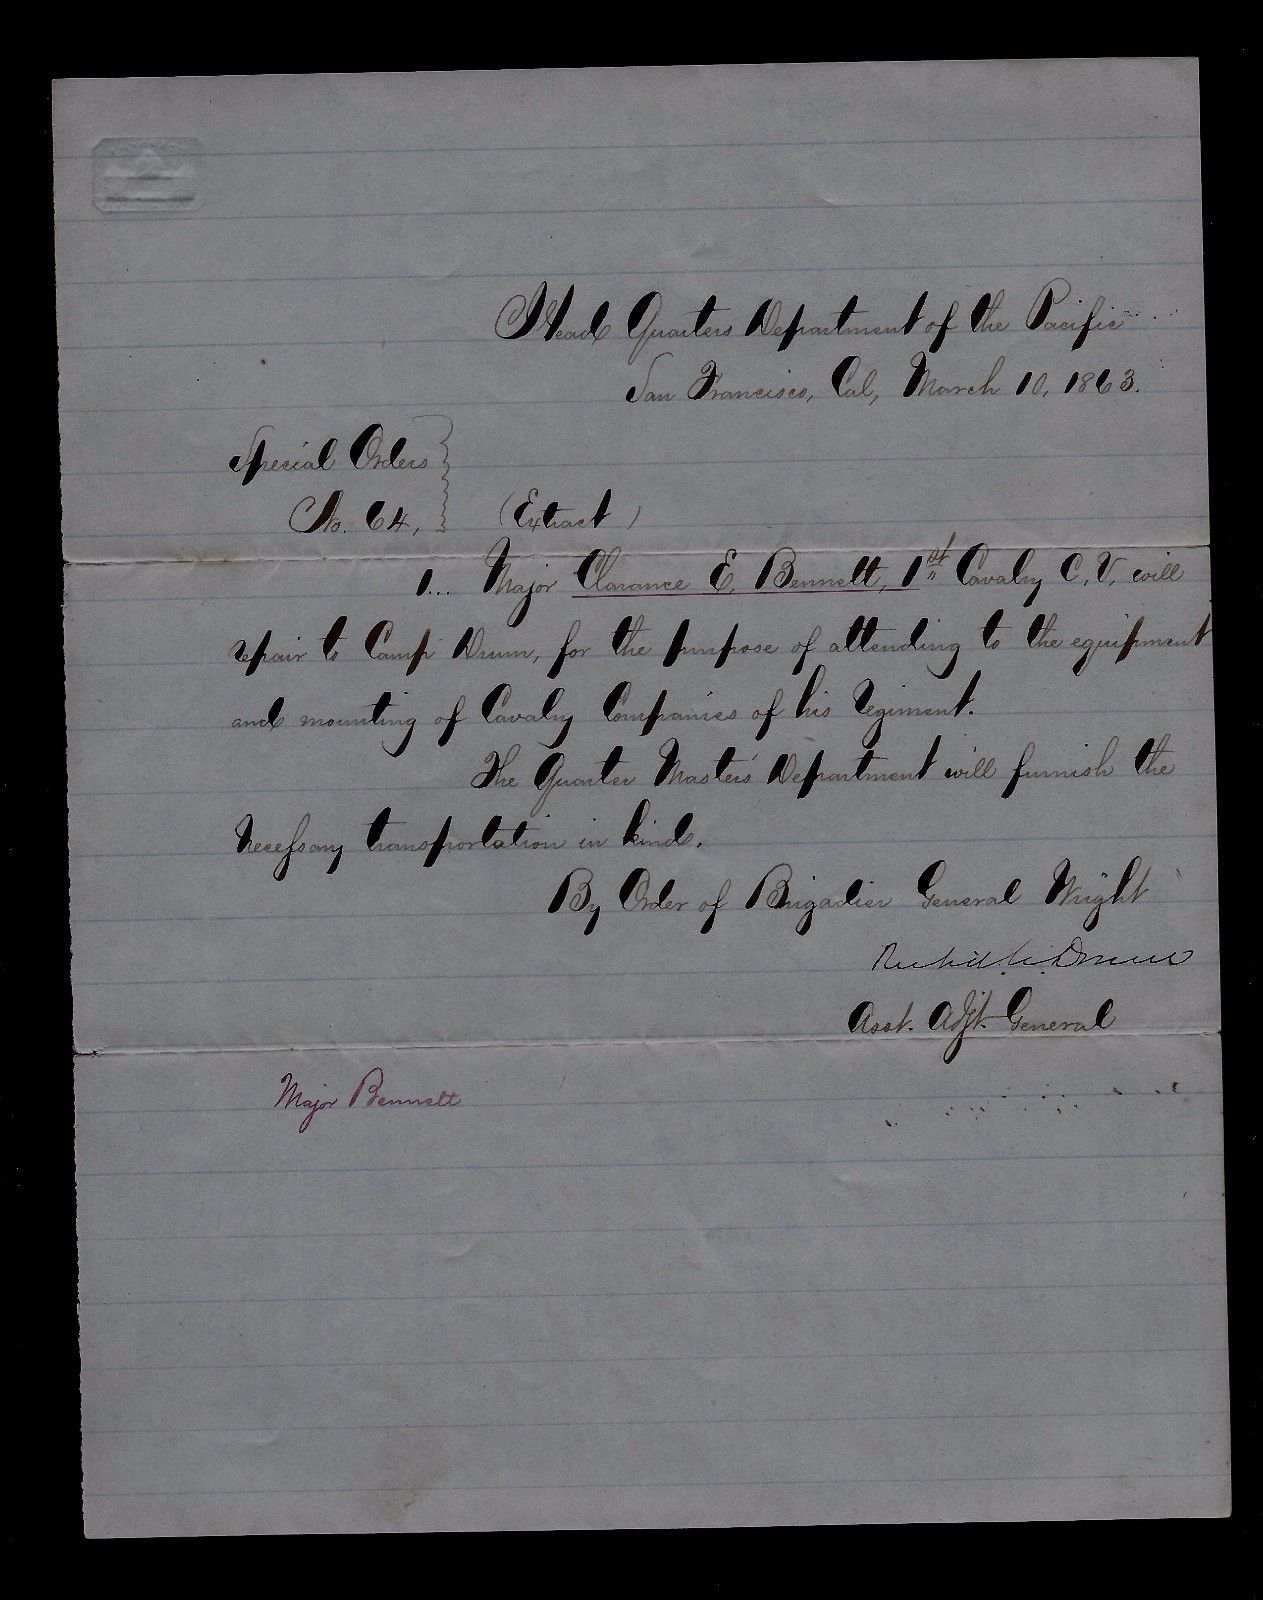 Head Quarters Department of the Pacific
San Francisco, Cal, March 10, 1863.
Special Orders
No. 64,
(Extract)
1... Major Clarance E, Bennett, 1st Cavalry C. V, will
repair to Camp Drum, for the purpose of attending to the equipment
and mounting of Cavalry Companies of his regiment.
The Quarter Masters' Department will furnish the
Necessary transportation in kind.
By Order of Brigadier General Wright
Richd. C. Drum
Asst. Adjt. General
Major Bennett